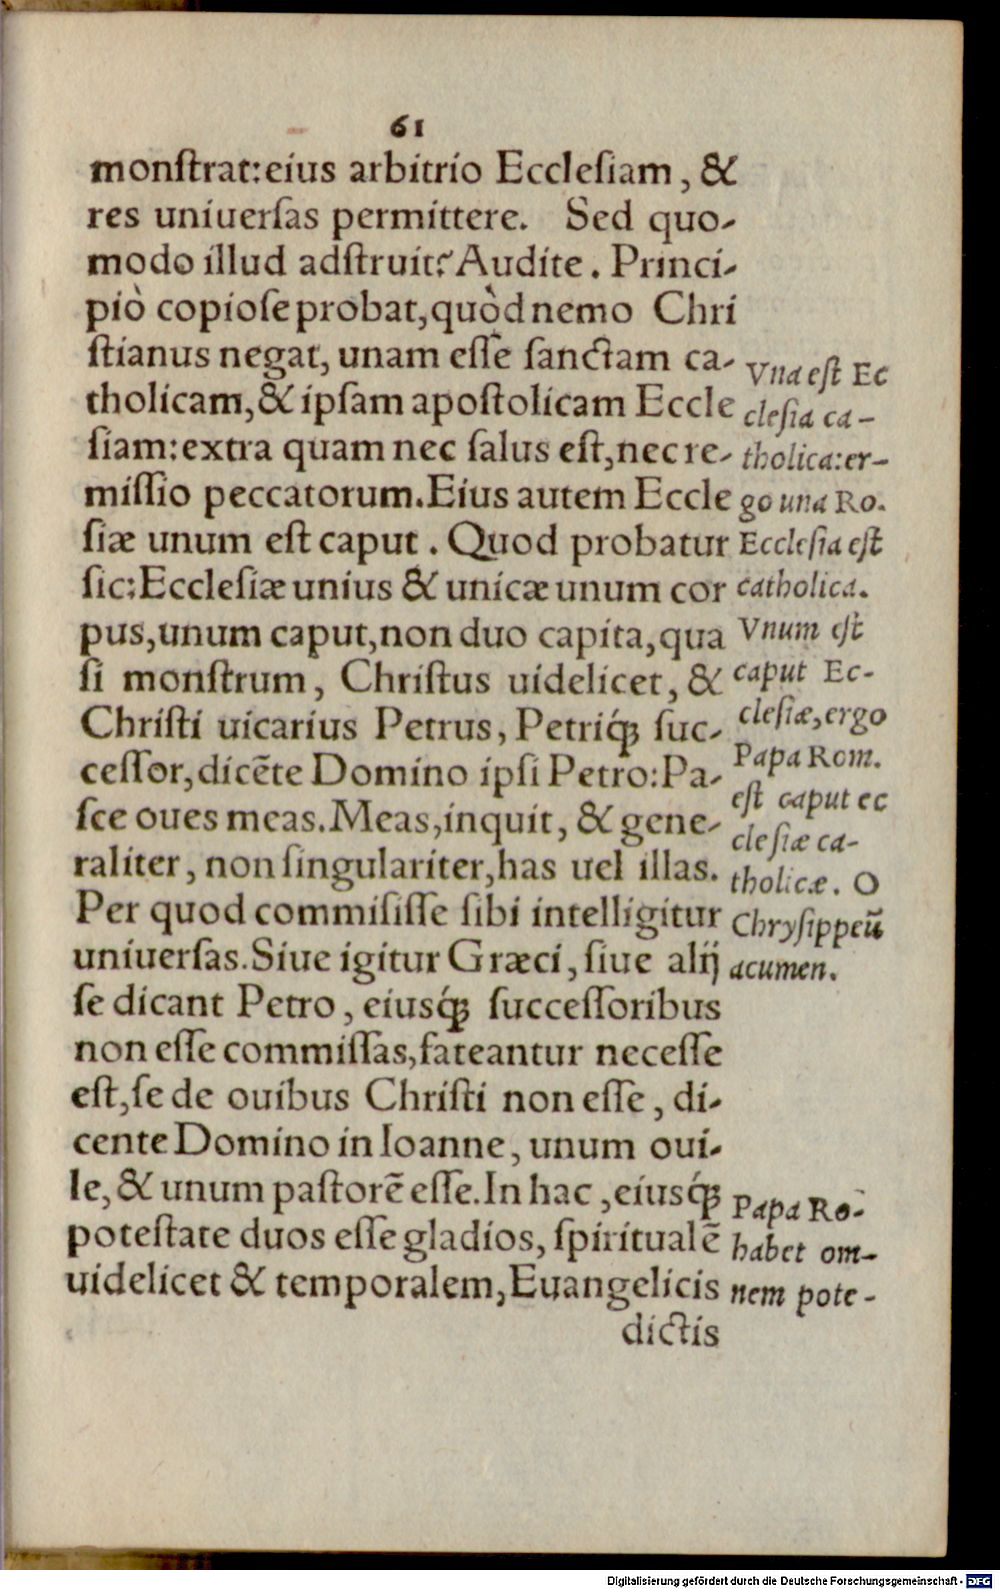 61
monſtrat:eius arbitrio Eccleſiam, &
res uniuerſas permittere. Sed quo-
modo illud adſtruit? Audite. Princi-
piò copioſe probat, quòd nemo Chri
ſtianus negat, unam eſſe ſanctam ca-
tholicam, & ipſam apoſtolicam Eccle
ſiam: extra quam nec ſalus eſt, nec re-
miſſio peccatorum. Eius autem Eccle
ſiæ unum eſt caput. Quod probatur
ſic: Eccleſiæ unius & unicæ unum cor
pus, unum caput, non duo capita, qua
ſi monſtrum, Chriſtus uidelicet, &
Chriſti uicarius Petrus, Petriq́ꝫ ſuc-
ceſſor, dicēte Domino ipſi Petro: Pa-
ſce oues meas. Meas, inquit, & gene-
raliter, non ſingulariter, has uel illas.
Per quod commiſiſſe ſibi intelligitur
uniuerſas. Siue igitur Græci, ſiue alij
ſe dicant Petro, eiusq́ꝫ ſucceſſoribus
non eſſe commiſſas, fateantur neceſſe
eſt, ſe de ouibus Chriſti non eſſe, di-
cente Domino in Ioanne, unum oui-
le, & unum paſtorē eſſe. In hac, eiusq́ꝫ
poteſtate duos eſſe gladios, ſpiritualē
uidelicet & temporalem, Euangelicis
dictis
Vna eſt Ec
cleſia ca-
tholica: er-
go una Ro.
Eccleſia eſt
catholica.
Vnum eſt
caput Ec-
cleſiæ, ergo
Papa Rom.
eſt caput ec
cleſiæ ca-
tholicæ. O
Chryſippeū
acumen.
Papa Ro-
habet om-
nem pote-
Digitalisierung gefördert durch die Deutsche Forschungsgemeinschaft - DFG